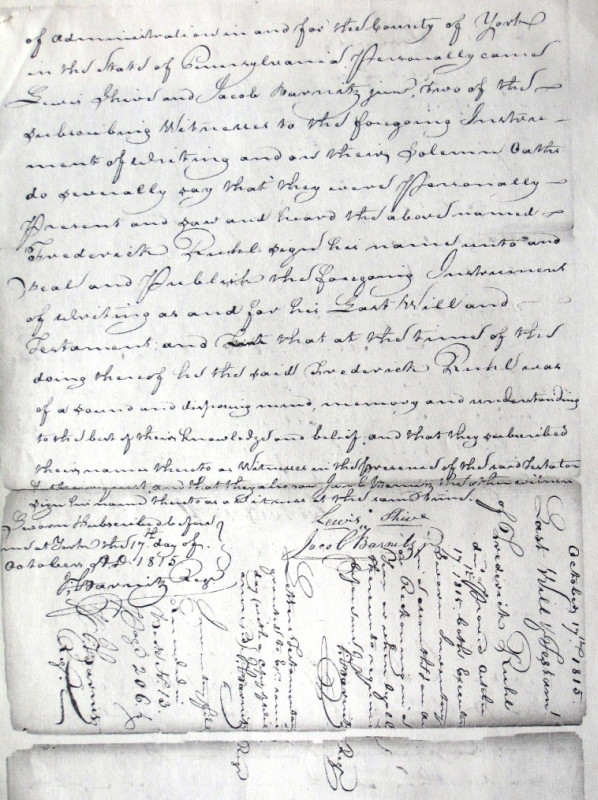 of administration in and for the County of York
in the State of Pennsylvania Personally came
Lewis Shive and Jacob Barnitz junr, two of the
subscribing Witnesses to the foregoing Instru-
ment of writing and on their Solemn Oaths
do severally say that they were Personally
Present and saw and heard the above named
Frederick Ruhl sign his name unto and
seal and Publish the foregoing Instrument
of writing as and for his Last Will and
Testament, and that at the time of the
doing thereof he the said Frederick Ruhl was
of a sound and disposing mind, memory and understanding
to the best of their knowledge and belief, and that they subscribed
their names thereto as Witnesses in the presence of the said Testator
& at his request and that they also saw the other witness
sign his name thereto as a Witness at the same time.
Sworn & subscribed before
me at York the 17th day of
October A.D. 1815
J. Barnitz Regr
Lewis Shive
Jacob Barnitz
October 17th 1815.
Last Will & Testamt
of Frederick Ruhl
17, 1815 both Executors
sworn Inventory
Barnitz Regr
Letters Testamentary
Barnitz Regr
Recorded in
Book N. 13.
Page 206 &
J. Barnitz
Regr